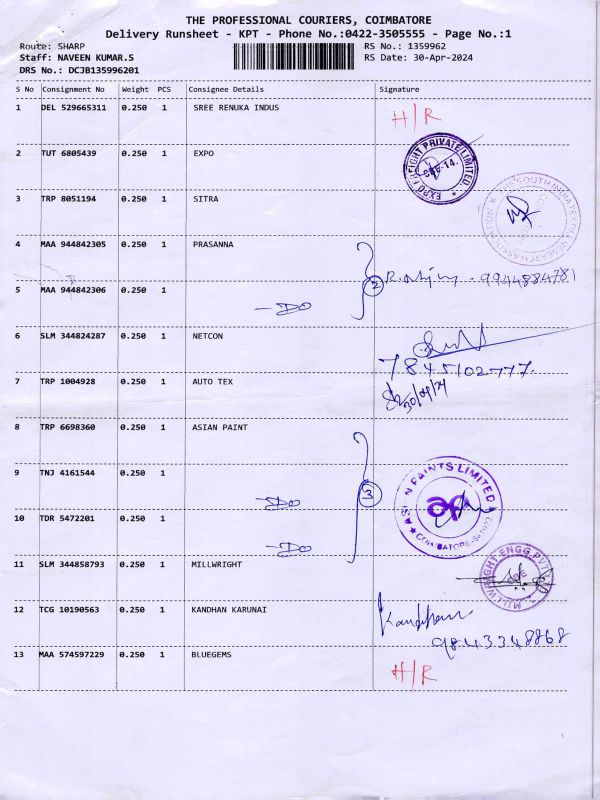 THE PROFESSIONAL COURIERS, COIMBATORE
Delivery Runsheet - KPT - Phone No.:0422-3505555 - Page No.:1
Route: SHARP RS No.: 1359962
Staff: NAVEEN KUMAR.S RS Date: 30-Apr-2024
DRS No.: DCJB135996201
S No Consignment No Weight PCS Consignee Details Signature
1 DEL 529665311 0.250 1 SREE RENUKA INDUS H/R
2 TUT 6805439 0.250 1 EXPO
EXPO FREIGHT PRIVATE LIMITED
3 TRP 8051194 0.250 1 SITRA
4 MAA 944842305 0.250 1 PRASANNA
2 9944884781
5 MAA 944842306 0.250 1 -DO
6 SLM 344824287 0.250 1 NETCON
7845102777.
7 TRP 1004928 0.250 1 AUTO TEX
30/04/24
8 TRP 6698360 0.250 1 ASIAN PAINT
9 TNJ 4161544 0.250 1
3 ASIAN PAINTS LIMITED ap
-DO
10 TDR 5472201 0.250 1
-DO
11 SLM 344858793 0.250 1 MILLWRIGHT
MILLWRIGHT ENGG PVT LTD
12 TCG 10190563 0.250 1 KANDHAN KARUNAI
9843348868
13 MAA 574597229 0.250 1 BLUEGEMS H/R